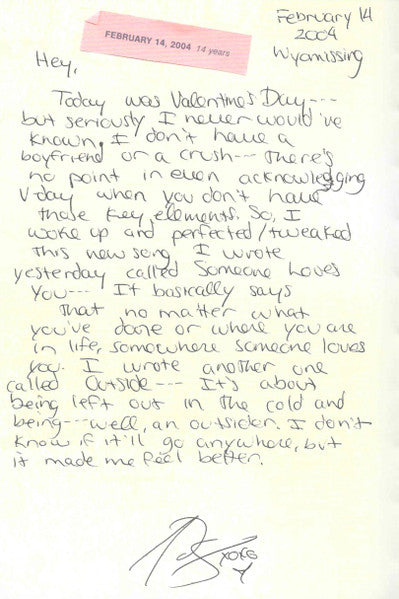 February 14
2004
Wyomissing
FEBRUARY 14, 2004 14 years
Hey,
Today was Valentino's Day---
but seriously I never would've
known. I don't have a
boyfriend or a crush--- There's
no point in even acknowledgging
V-day when you don't have
those key elements. So, I
woke up and perfected/tweaked
this new song I wrote
yesterday called Someone Loves
You--- It basically says
That no matter what
you've done or where you are
in life, somewhere someone loves
you. I wrote another one
called Outside--- It's about
being left out in the cold and
being---well, an outsider. I don't
know if it'll go anywhere, but
it made me feel better.